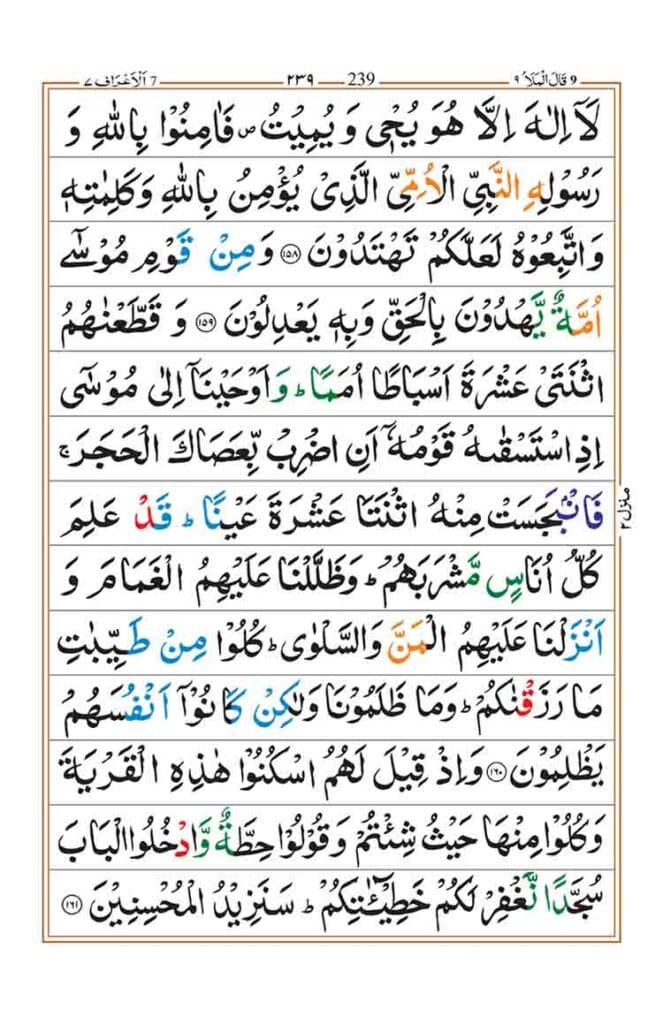 قَالَ الْمَلَاُ ۹ 9 239 ۲۳۹ اَلْاَعْرَاف ۷ 7
لَاۤ اِلٰهَ اِلَّا هُوَ يُحْيٖ وَ يُمِيْتُ ۪ فَاٰمِنُوْا بِاللّٰهِ وَ
رَسُوْلِهِ النَّبِيِّ الْاُمِّيِّ الَّذِيْ يُؤْمِنُ بِاللّٰهِ وَ كَلِمٰتِهٖ
وَ اتَّبِعُوْهُ لَعَلَّكُمْ تَهْتَدُوْنَ ﴿۱۵۸﴾ وَ مِنْ قَوْمِ مُوْسٰۤى
اُمَّةٌ يَّهْدُوْنَ بِالْحَقِّ وَ بِهٖ يَعْدِلُوْنَ ﴿۱۵۹﴾ وَ قَطَّعْنٰهُمُ
اثْنَتَيْ عَشْرَةَ اَسْبَاطًا اُمَمًا ؕ وَ اَوْحَيْنَاۤ اِلٰى مُوْسٰۤى
اِذِ اسْتَسْقٰىهُ قَوْمُهٗۤ اَنِ اضْرِبْ بِّعَصَاكَ الْحَجَرَ ۚ
فَانْۢبَجَسَتْ مِنْهُ اثْنَتَا عَشْرَةَ عَيْنًا ؕ قَدْ عَلِمَ
كُلُّ اُنَاسٍ مَّشْرَبَهُمْ ؕ وَ ظَلَّلْنَا عَلَيْهِمُ الْغَمَامَ وَ
اَنْزَلْنَا عَلَيْهِمُ الْمَنَّ وَ السَّلْوٰى ؕ كُلُوْا مِنْ طَيِّبٰتِ
مَا رَزَقْنٰكُمْ ؕ وَ مَا ظَلَمُوْنَا وَ لٰكِنْ كَانُوْۤا اَنْفُسَهُمْ
يَظْلِمُوْنَ ﴿۱۶۰﴾ وَ اِذْ قِيْلَ لَهُمُ اسْكُنُوْا هٰذِهِ الْقَرْيَةَ
وَ كُلُوْا مِنْهَا حَيْثُ شِئْتُمْ وَ قُوْلُوْا حِطَّةٌ وَّ ادْخُلُوا الْبَابَ
سُجَّدًا نَّغْفِرْ لَكُمْ خَطِيْٓـٰٔتِكُمْ ؕ سَنَزِيْدُ الْمُحْسِنِيْنَ ﴿۱۶۱﴾
منزل ۲